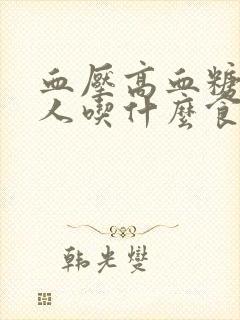 血壓高血糖
人喫什麼食
韩光燮